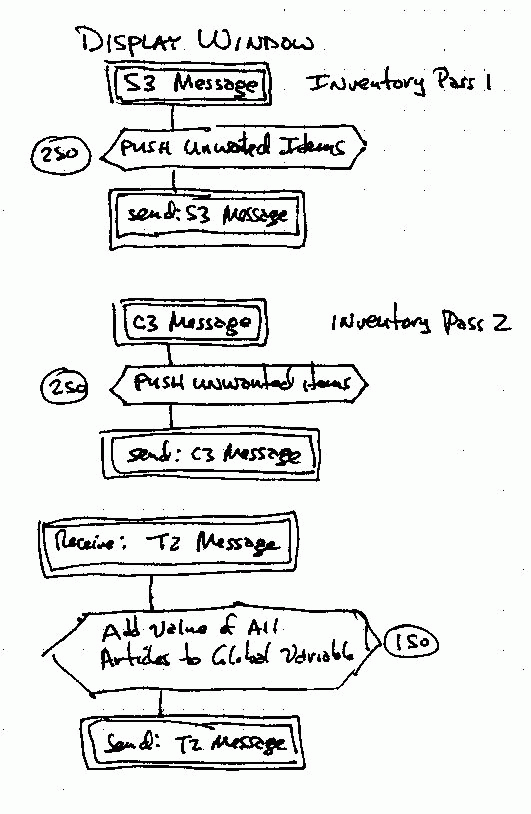 DISPLAY WINDOW
S3 Message
Inventory Pass 1
250
PUSH Unwanted Items
send: S3 Message
C3 Message
Inventory Pass 2
250
PUSH UNWANTED items
send: C3 Message
Receive: T2 Message
Add Value of All
Articles to Global Variable
150
Send: T2 Message